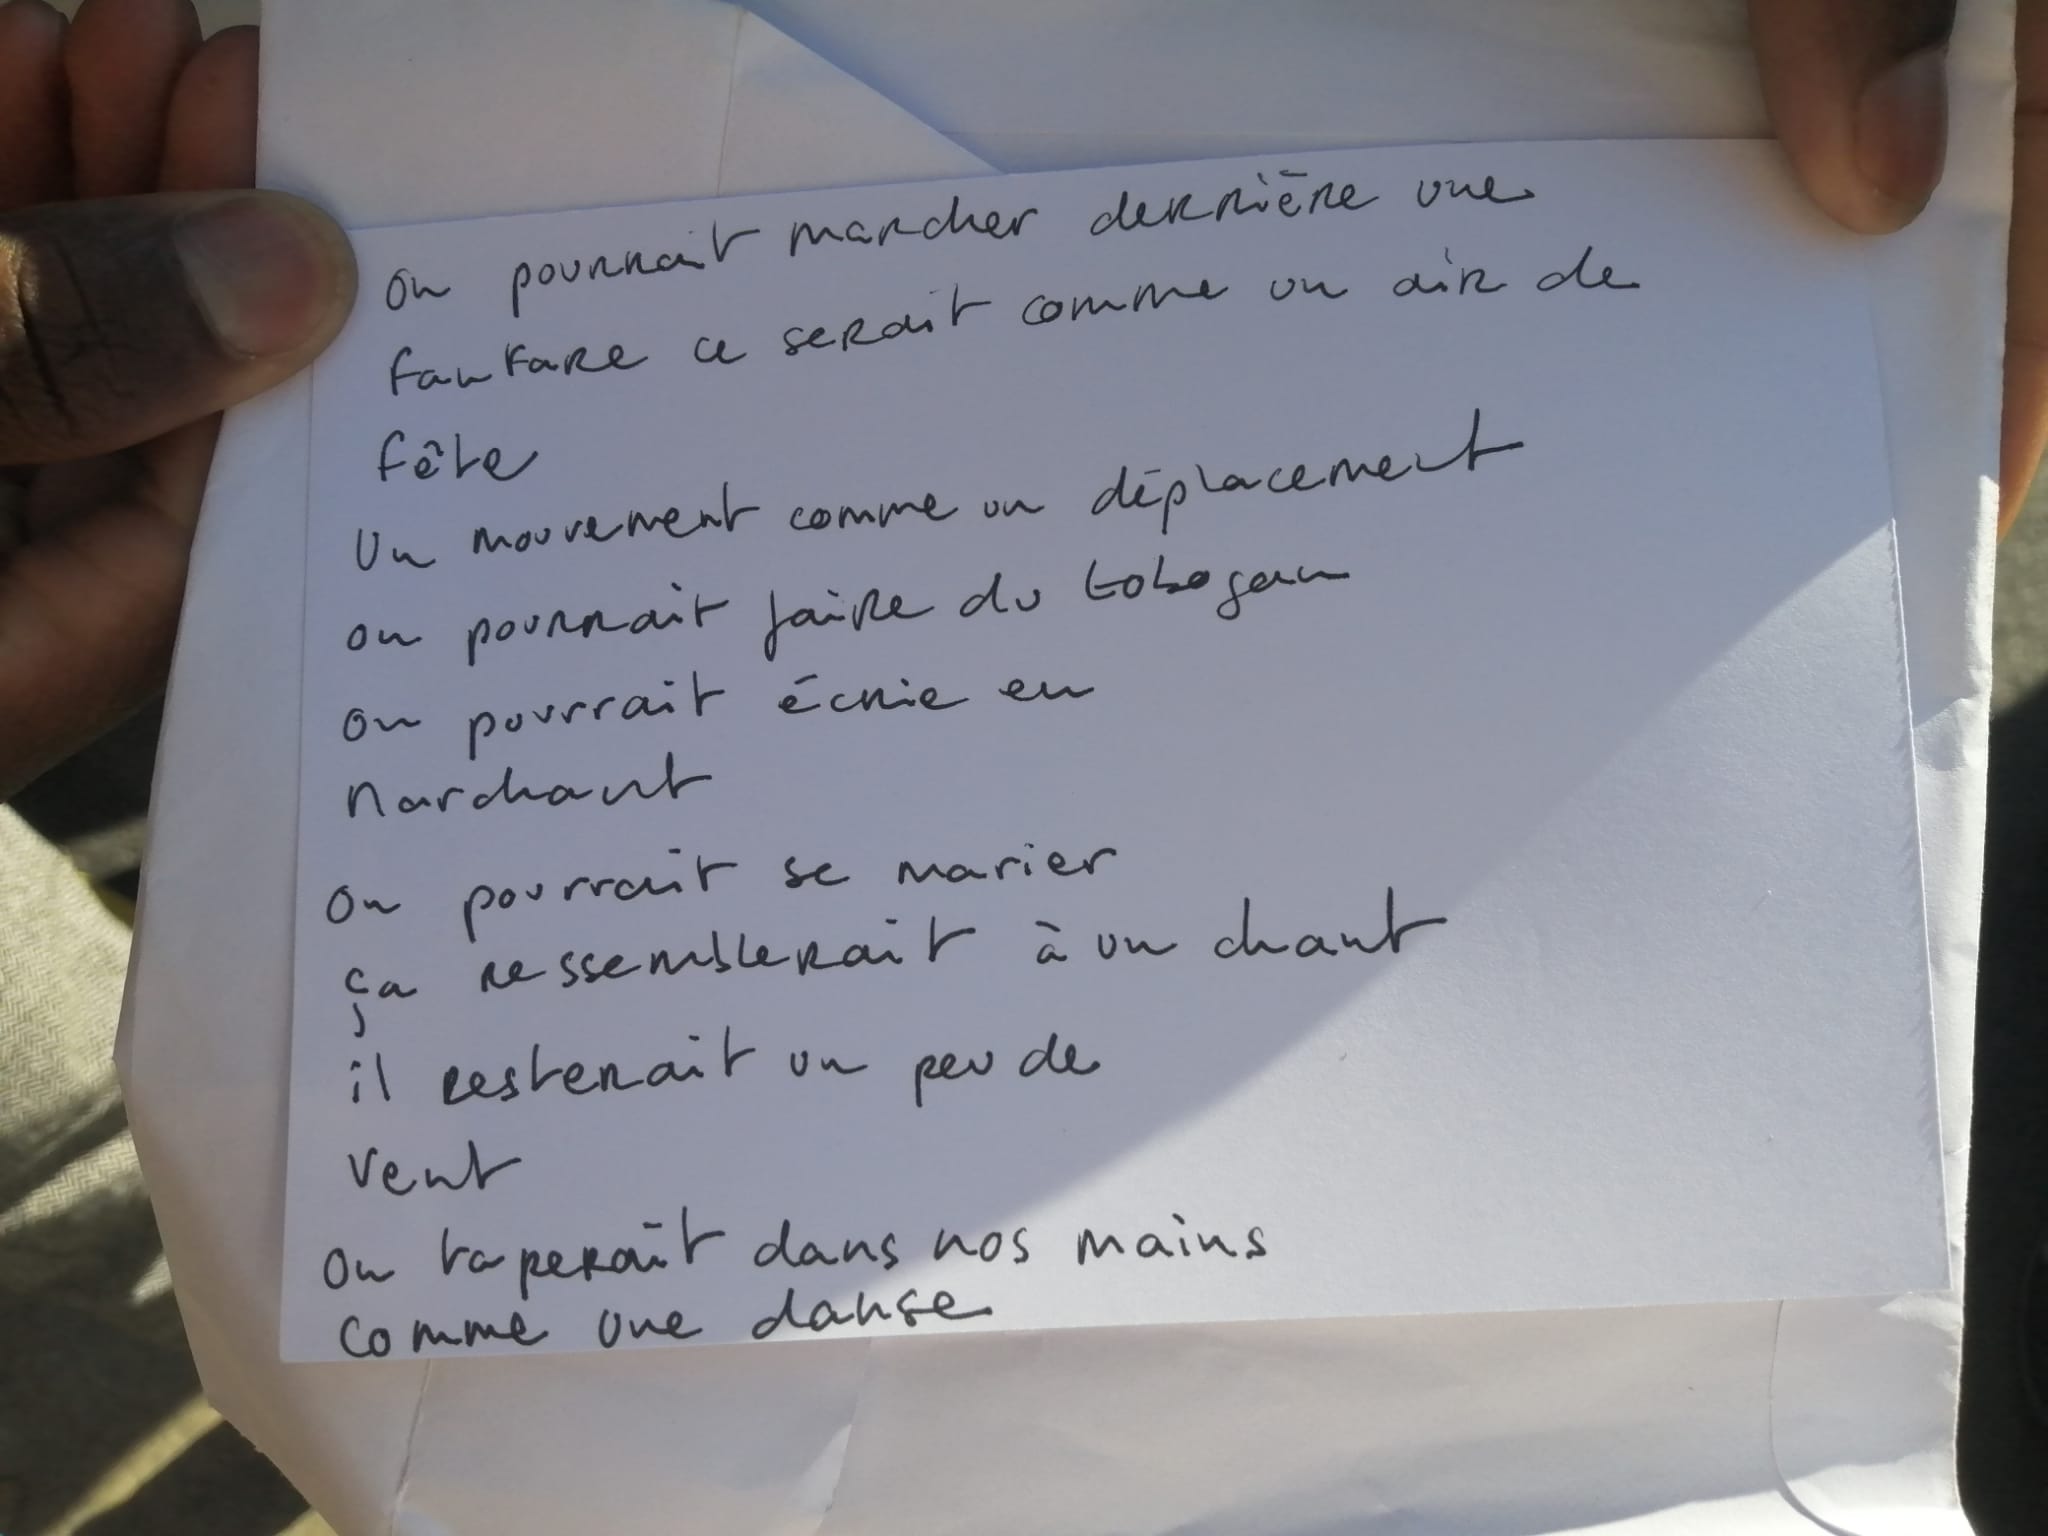 On pourrait marcher derrière une
fanfare ce serait comme un air de
fête
Un mouvement comme un déplacement
on pourrait faire du tobogan
on pourrait écrie en
marchant
On pourrait se marier
ça ressemblerait à un chant
il resterait un peu de
vent
On taperait dans nos mains
comme une danse